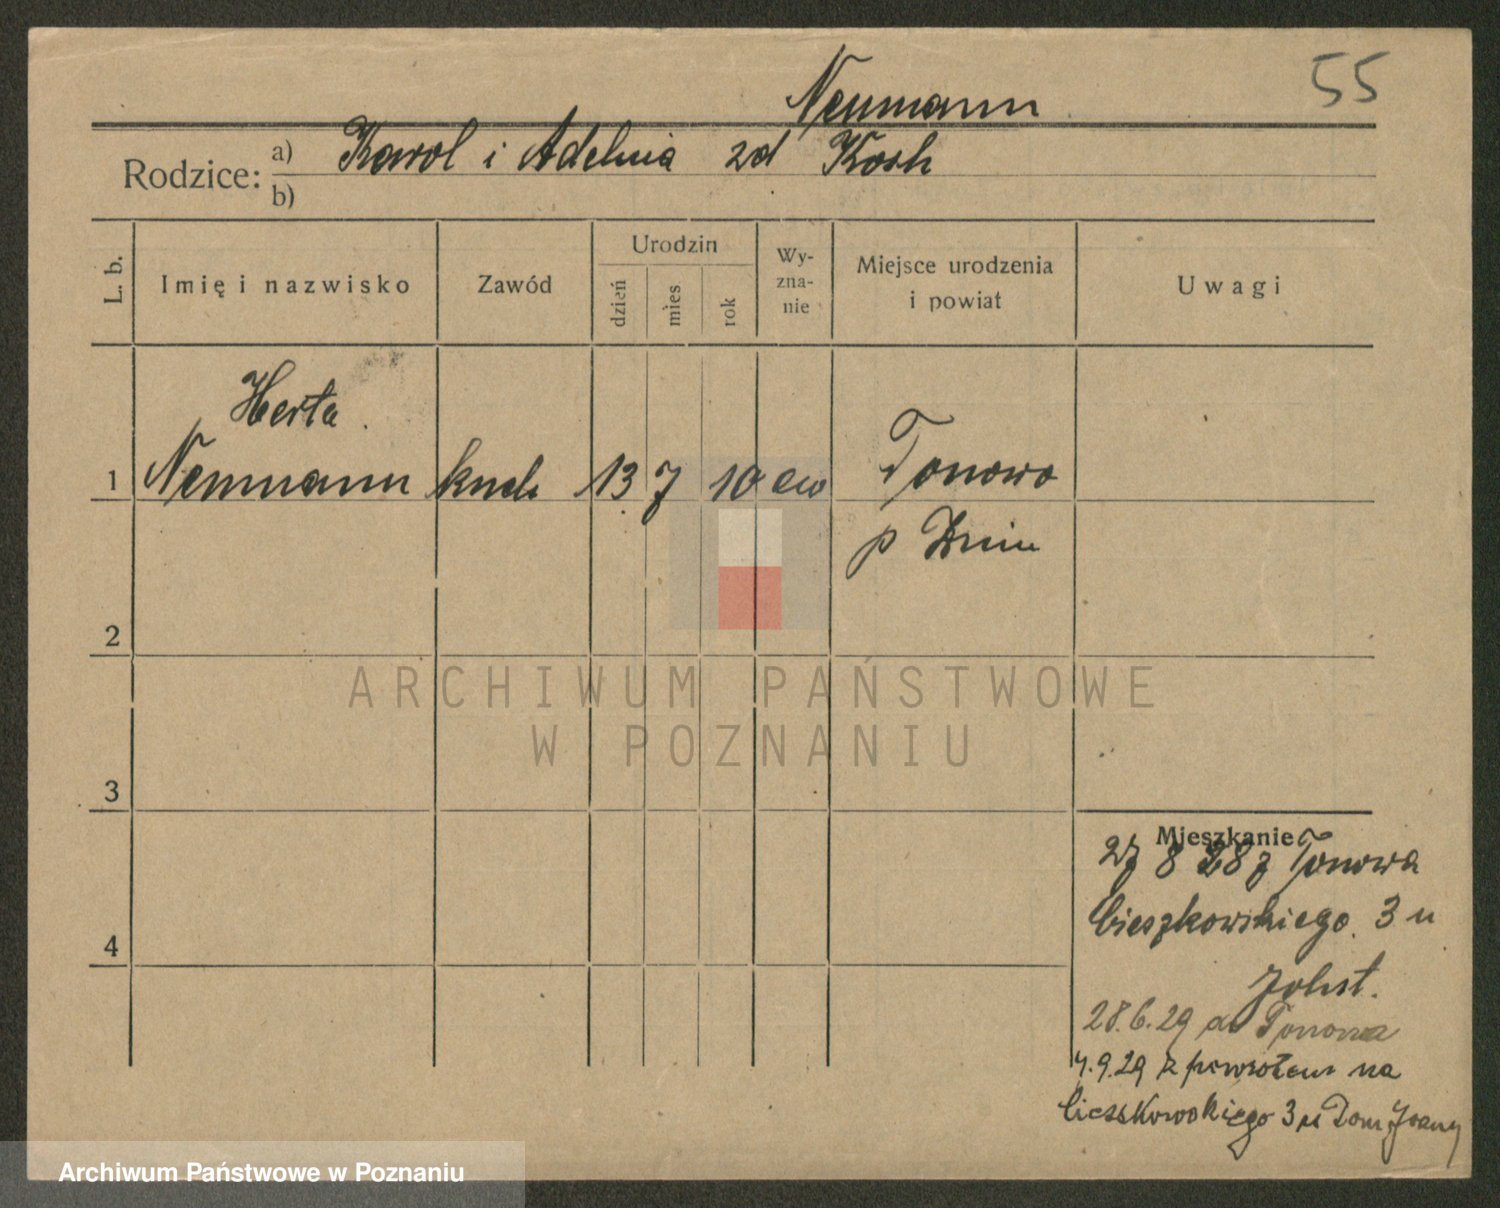 55
Neumann
Rodzice: a) Karol i Adelina zd Kosh
b)
L. b. Imię i nazwisko Zawód Urodzin dzień mies rok Wyznanie Miejsce urodzenia i powiat Uwagi
Herta
1 Neumann kuch 13 7 10 ew Tonowo
p Żnin
2
3
4
Mieszkanie
27 8 28 z Tonowa
Cieszkowskiego 3 u
28.6.29 do Tonowa
4.9.29 z powrotem na
Cieszkowskiego 3 u
ARCHIWUM PAŃSTWOWE
W POZNANIU
Archiwum Państwowe w Poznaniu